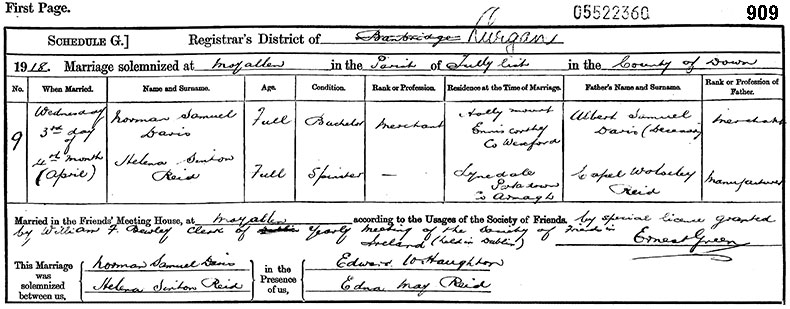 First Page.
05522360
909
SCHEDULE G.] Registrar's District of Banbridge Lurgan
1918. Marriage solemnized at Moyallen in the Parish of Tullylish in the County of Down
No. When Married. Name and Surname. Age. Condition. Rank or Profession. Residence at the Time of Marriage. Father's Name and Surname. Rank or Profession of Father.
9
Wednesday 3rd day of 4th month (April)
Norman Samuel Davis Full Bachelor Merchant Holly mount Enniscorthy Co Wexford Albert Samuel Davis (Deceased) Merchant
Helena Sinton Reid Full Spinster — Lynedale Portadown Co Armagh Capel Wolseley Reid Manufacturer
Married in the Friends' Meeting House, at Moyallen according to the Usages of the Society of Friends. by special license granted
by William F. Bewley Clerk of Dublin Yearly Meeting of the Society of Friends in
Ireland (held in Dublin) Ernest Green
This Marriage was solemnized between us,
Norman Samuel Davis
Helena Sinton Reid
in the Presence of us,
Edward W Haughton
Edna May Reid